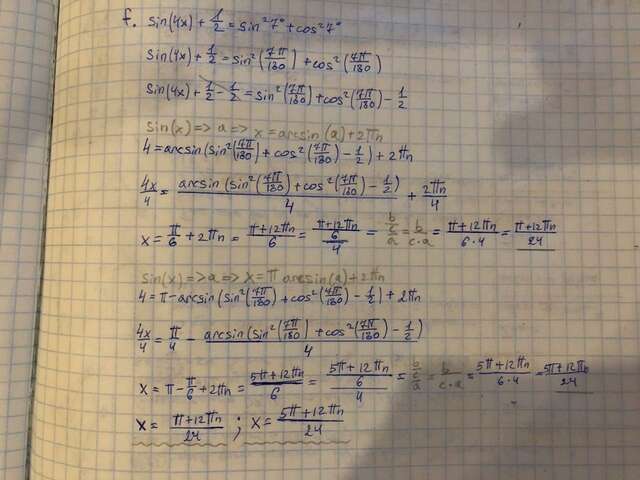 f. sin(4x) + 1/2 = sin²7° + cos²7°
sin(4x) + 1/2 = sin²(7π/180) + cos²(7π/180)
sin(4x) + 1/2 - 1/2 = sin²(7π/180) + cos²(7π/180) - 1/2
sin(x) => a => x = arcsin(a) + 2πn
4 = arcsin(sin²(7π/180) + cos²(7π/180) - 1/2) + 2πn
4x/4 = arcsin(sin²(7π/180) + cos²(7π/180) - 1/2)/4 + 2πn/4
x = π/6 + 2πn = (π+12πn)/6 = ((π+12πn)/6)/4 = (b/c)/a = b/(c·a) = (π+12πn)/(6·4) = (π+12πn)/24
sin(x) => a => x = π arcsin(a) + 2πn
4 = π - arcsin(sin²(7π/180) + cos²(7π/180) - 1/2) + 2πn
4x/4 = π/4 - arcsin(sin²(7π/180) + cos²(7π/180) - 1/2)/4
x = π - π/6 + 2πn = (5π+12πn)/6 = ((5π+12πn)/6)/4 = (b/c)/a = b/(c·a) = (5π+12πn)/(6·4) = (5π+12πn)/24
x = (π+12πn)/24 ; x = (5π+12πn)/24